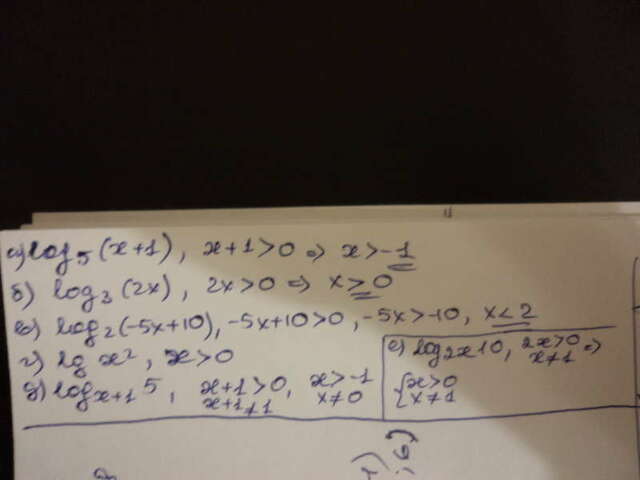 а) log₅(x+1), x+1>0 ⇒ x>-1
б) log₃(2x), 2x>0 ⇒ x>0
в) log₂(-5x+10), -5x+10>0, -5x>-10, x<2
г) lg x², x>0
д) logₓ₊₁5, x+1>0, x>-1
x+1≠1 x≠0
е) log₂ₓ10, 2x>0 ⇒
x≠1
{x>0
x≠1